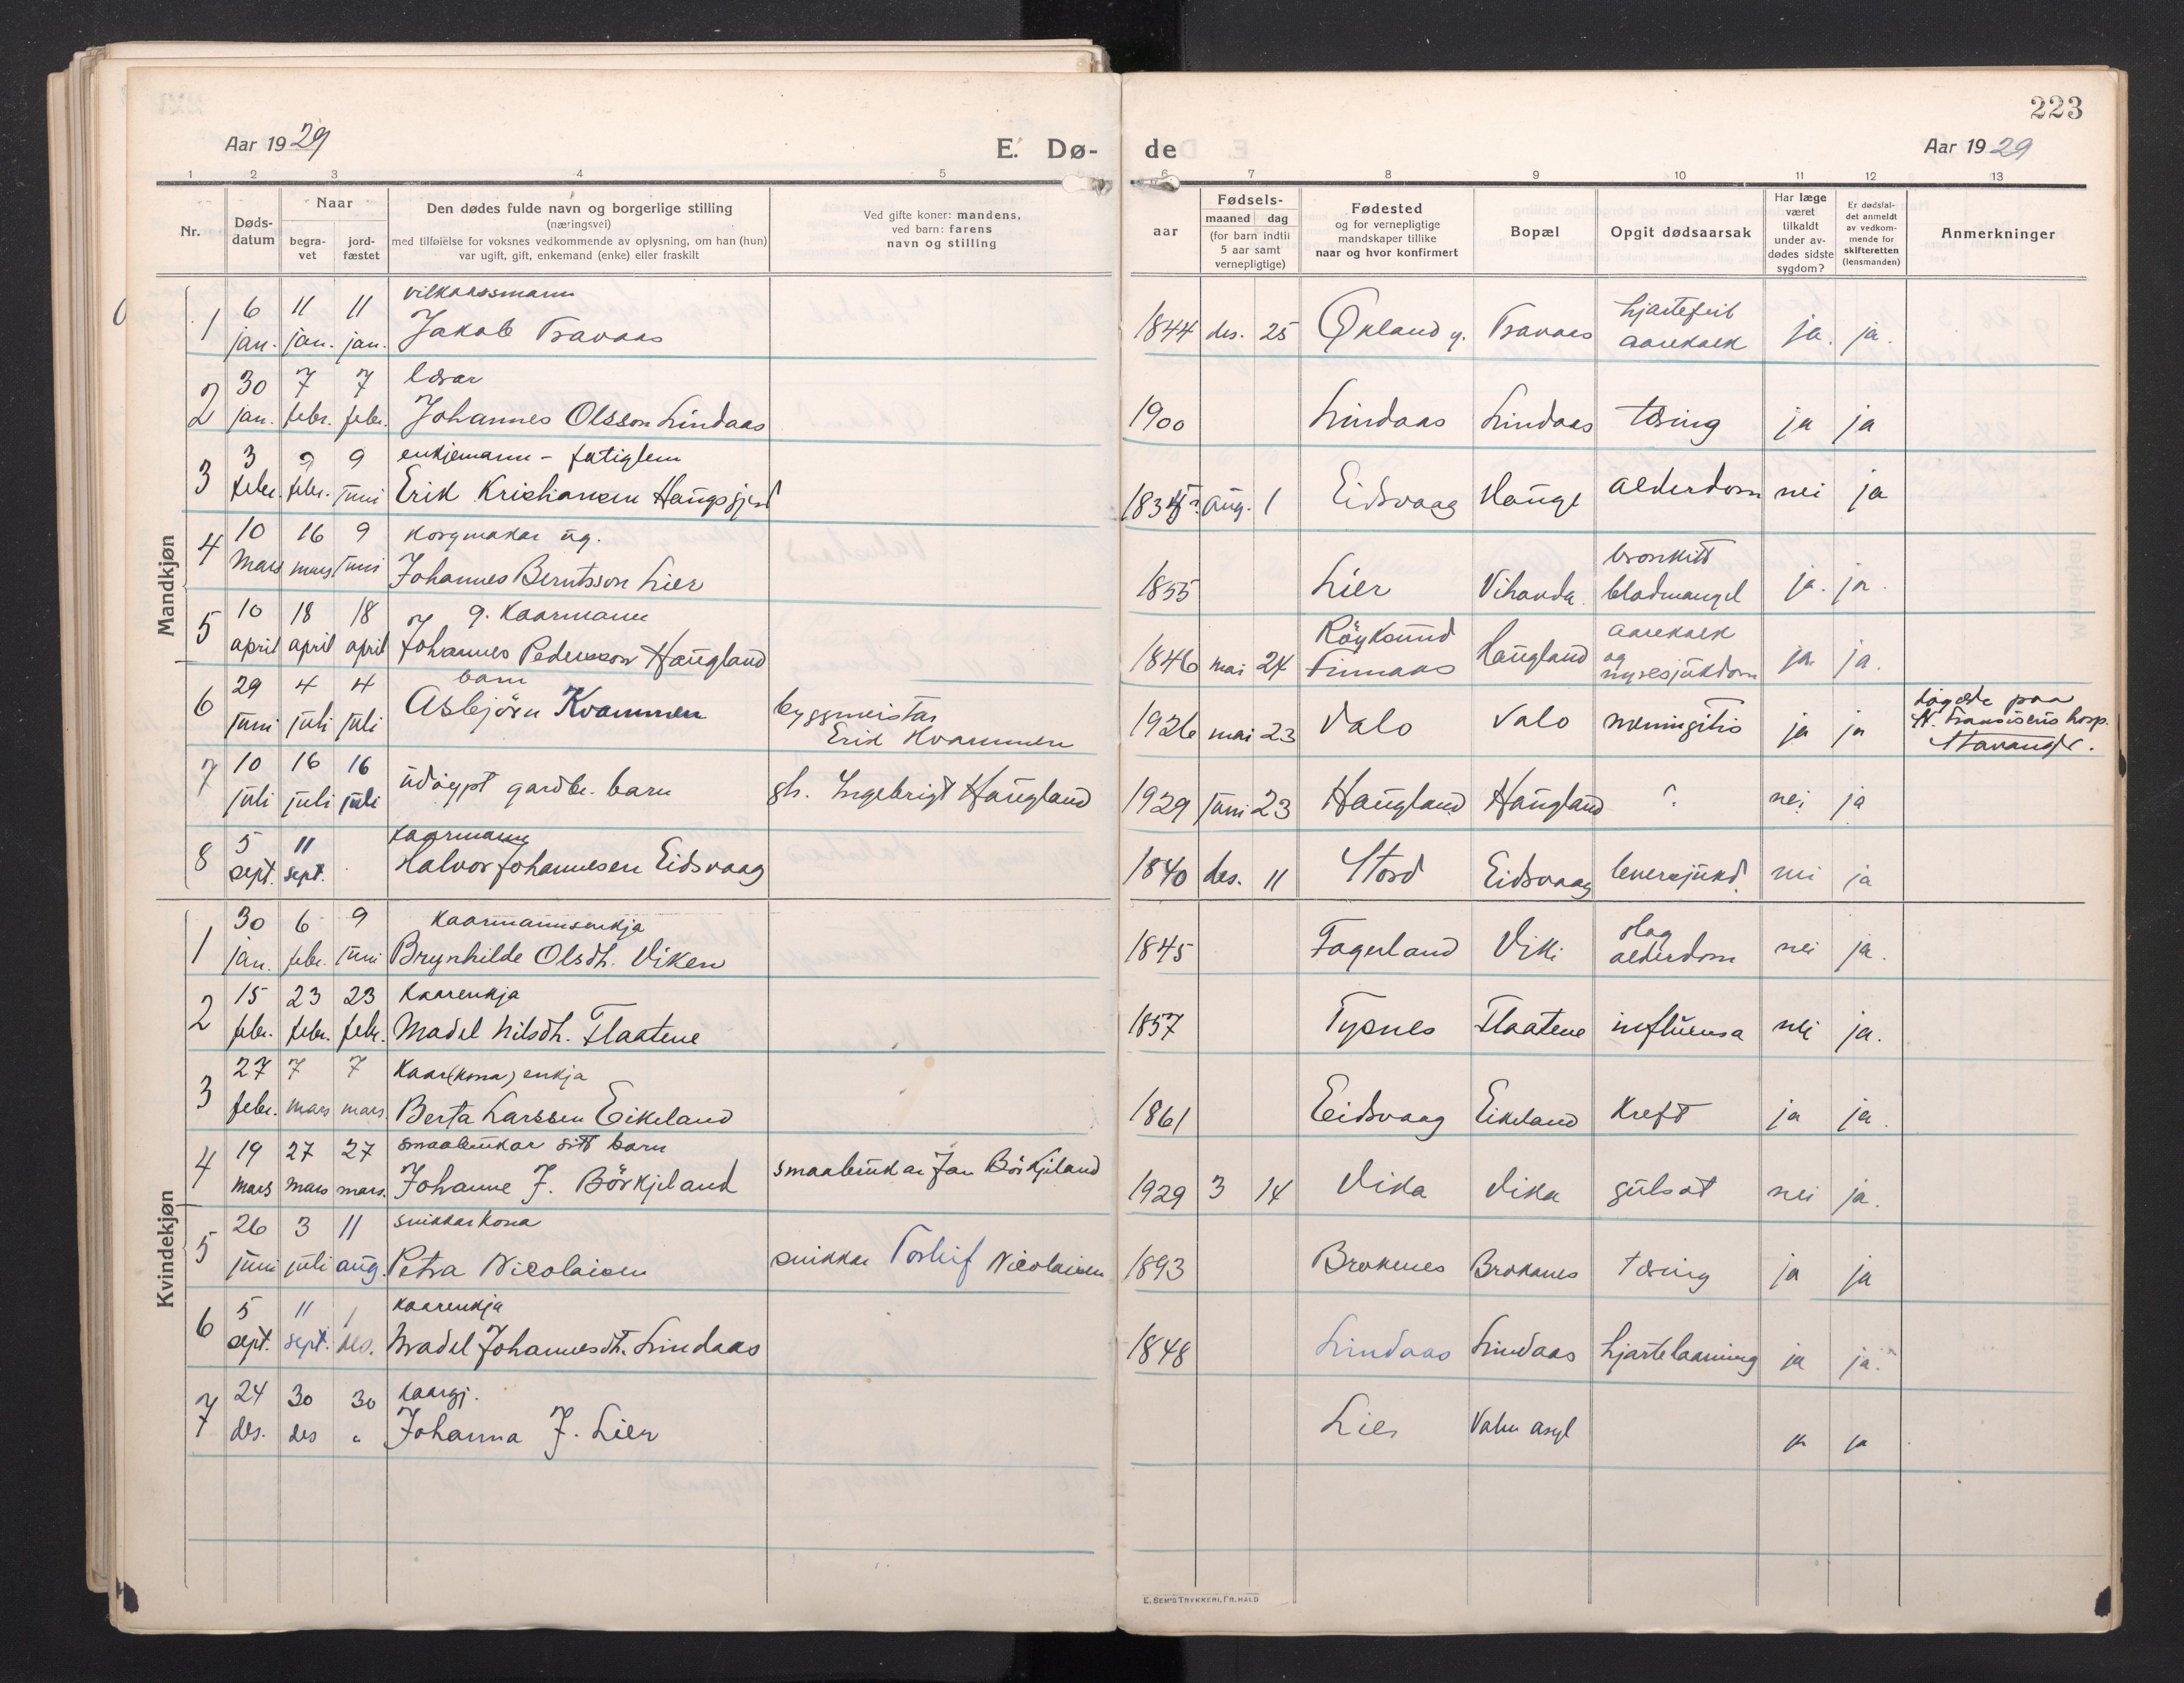 223
Aar 1929
E. Dø-
de
Aar 1929
1 2 3 4 5 6 7 8 9 10 11 12 13
Nr.
Døds-
datum
Naar
begra-
vet
jord-
fæstet
Den dødes fulde navn og borgerlige stilling
(næringsvei)
med tilføielse for voksnes vedkommende av oplysning, om han (hun)
var ugift, gift, enkemand (enke) eller fraskilt
Ved gifte koner: mandens,
ved barn: farens
navn og stilling
aar
Fødsels-
maaned dag
(for barn indtil
5 aar samt
vernepligtige)
Fødested
og for vernepligtige
mandskaper tillike
naar og hvor konfirmert
Bopæl
Opgit dødsaarsak
Har læge
været
tilkaldt
under av-
dødes sidste
sygdom?
Er dødsfal-
det anmeldt
av vedkom-
mende for
skifteretten
(lensmanden)
Anmerkninger
Mandkjøn
6 11 11 vilkaarsmann hjartefeil
1 jan. jan. jan. Jakob Travaas 1844 des. 25 Økland y. Travaas aarekalk ja. ja.
30 7 7 lærar
2 jan. febr. febr. Johannes Olsson Lindaas 1900 Lindaas Lindaas tæring ja ja
3 9 9 enkjemann - fatiglem
3 febr. febr. juni Erik Kristiansen Haugsgjerd 1834 aug. 1 Eidsvaag Hauge alderdom nei ja
10 16 9 korgmakar ug. bronkitt
4 mars mars juni Johannes Berntsson Lier 1855 Lier Vihovda blodmangel ja. ja.
10 18 18 g. kaarmann Röyksund aarekalk
5 april april april Johannes Pedersson Haugland 1846 mai 24 Finnaas Haugland og ja. ja.
nyresjukdom
29 4 4 barn
6 juni juli juli Asbjörn Kvammen byggmeistar 1926 mai 23 Valo Valo meningitis ja ja
Erik Kvammen
paa
St. Fransiscus hosp.
Stavanger.
10 16 16
7 juli juli juli udöypt gardbr. barn gb. Ingebrigt Haugland 1929 juni 23 Haugland Haugland ? nei ja
5 11 kaarmann
8 sept. sept. Halvor Johannesen Eidsvaag 1840 des. 11 Stord Eidsvaag leversjukd. nei ja
Kvindekjøn
30 6 9 kaarmannsenkja slag
1 jan. febr. juni Brynhilde Olsdt. Viken 1845 Fagerland Vik alderdom nei ja.
15 23 23 kaarenkja
2 febr. febr. febr. Madel Nilsdt. Flaatene 1857 Typnes Flaatene influensa nei ja.
27 7 7 kaar(kona)enkja
3 febr. mars mars Berta Larssen Eikeland 1861 Eidsvaag Eikeland kreft ja ja.
19 27 27 smaabrukar sitt barn
4 mars mars mars. Johanne J. Börkjeland smaabrukar Jan Börkjeland 1929 3 14 Vika Vika gulsot nei ja.
26 3 11 snikkarkona
5 juni juli aug. Petra Nicolaisen snikkar Torleif Nicolaisen 1893 Brokenes Brokanes tæring ja ja
5 11 1 kaarenkja
6 sept. sept. des. Madel Johannesdt. Lindaas 1848 Lindaas Lindaas hjartelaaming ja ja.
24 30 30 kaargj.
7 des. des " Johanna J. Lier Lier Valen asyl ja ja
E. SEM'S TRYKKERI, FR.HALD